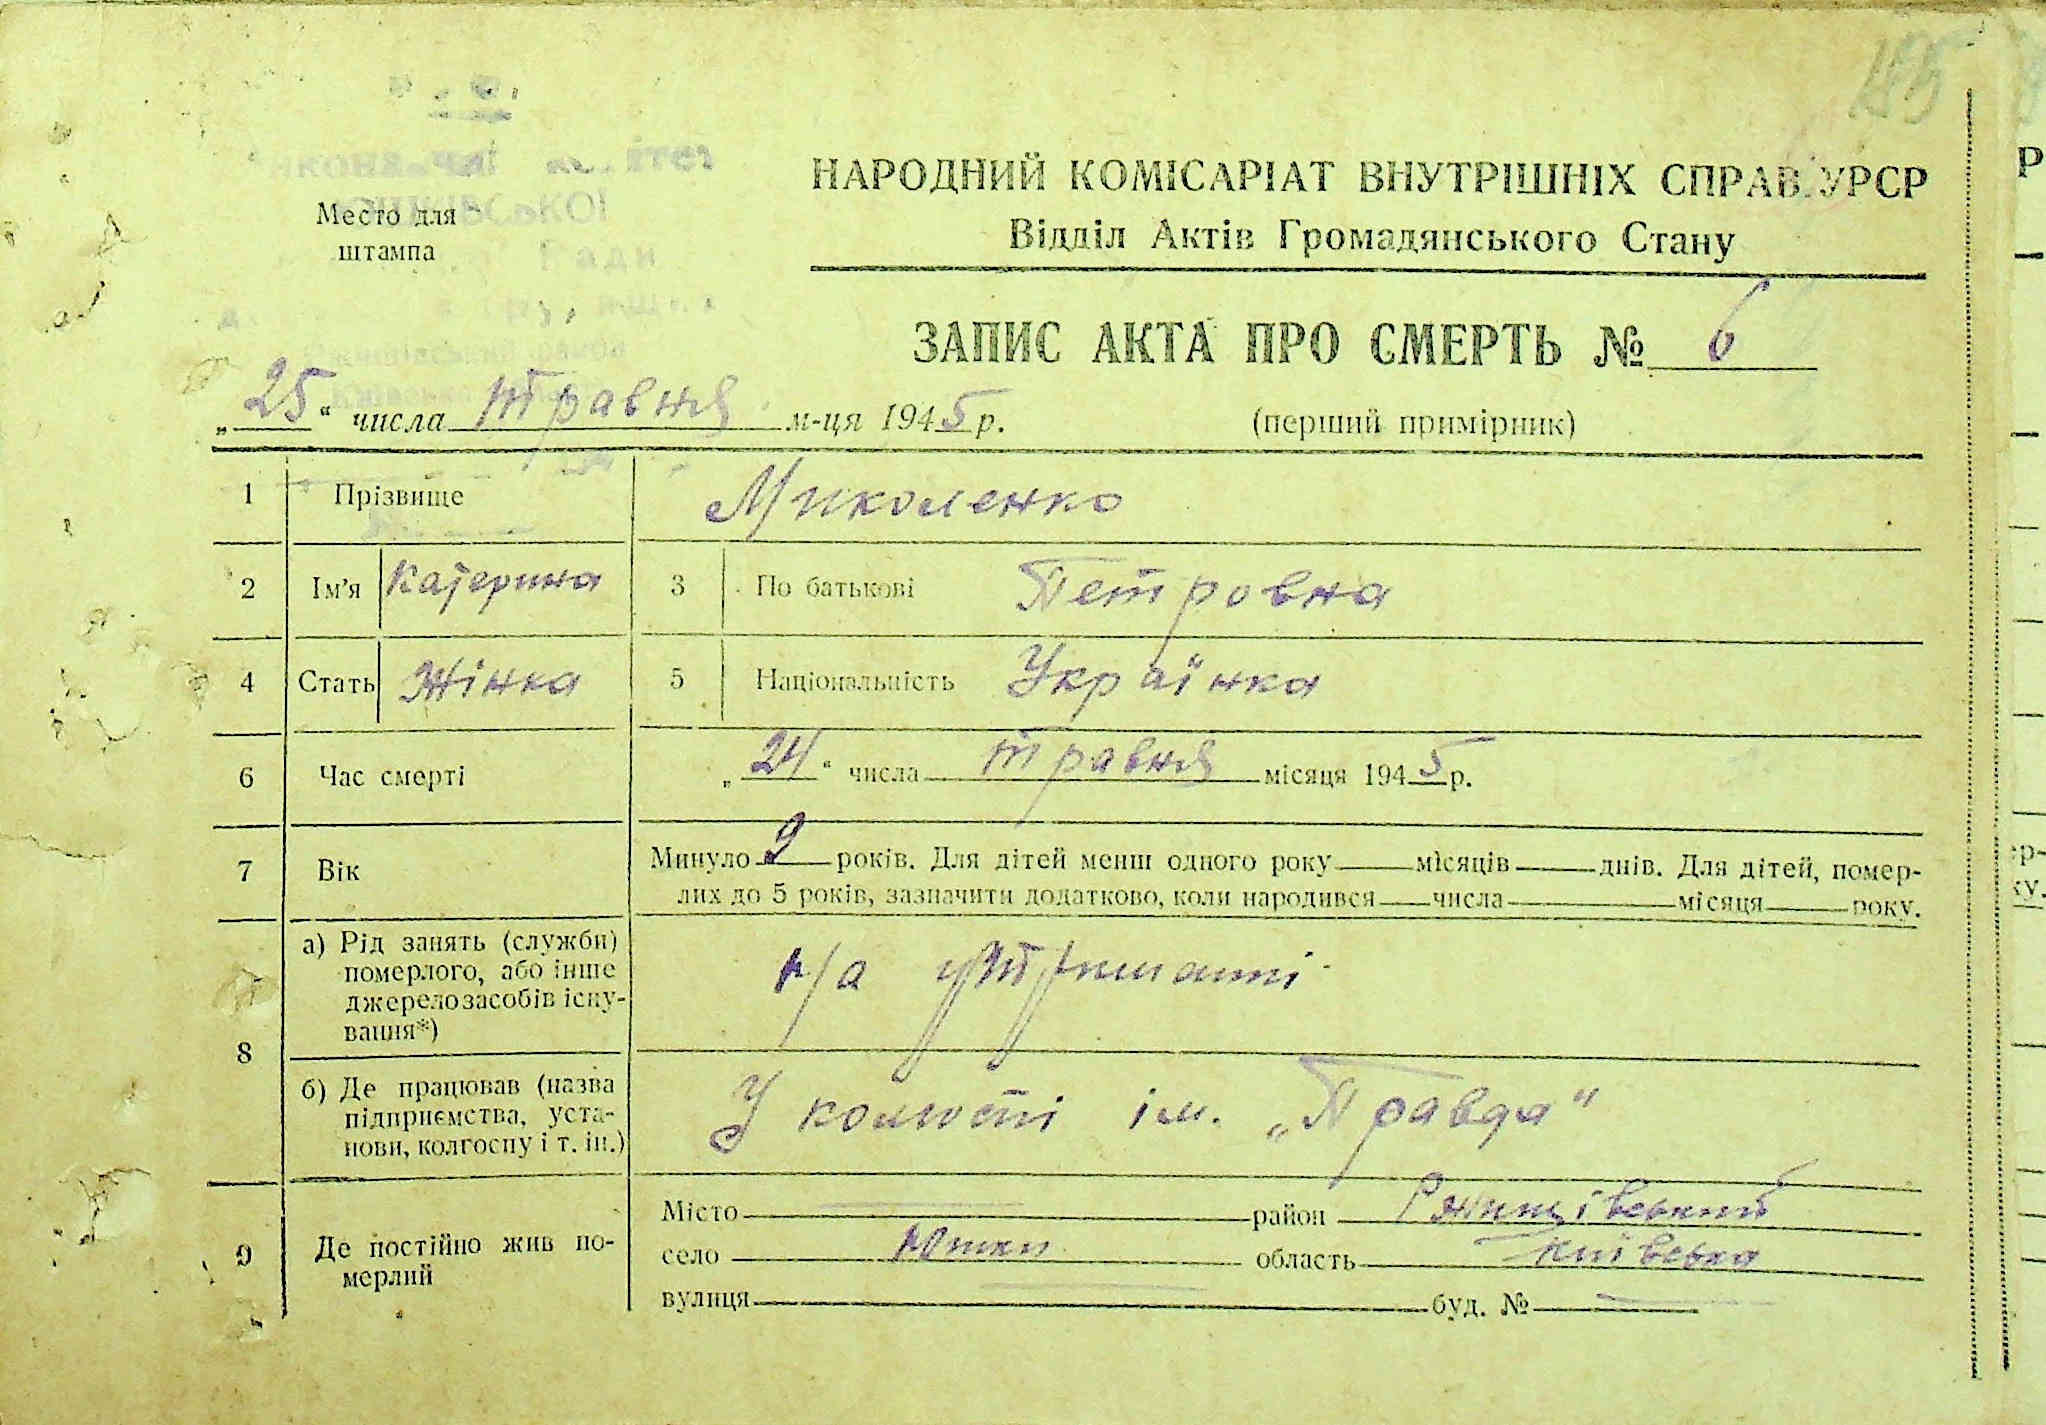 155
НАРОДНИЙ КОМІСАРІАТ ВНУТРІШНІХ СПРАВ УРСР
Відділ Актів Громадянського Стану
Место для
штампа
ЗАПИС АКТА ПРО СМЕРТЬ № 6
„25“ числа травня м-ця 1945 р.
(перший примірник)
1 Прізвище Миколенко
2 Ім'я Катерина 3 По батькові Петровна
4 Стать Жінка 5 Національність Українка
6 Час смерті „24“ числа травня місяця 1945 р.
7 Вік Минуло 9 років. Для дітей менш одного року місяців днів. Для дітей, помер-
лих до 5 років, зазначити додатково, коли народився числа місяця року.
8 а) Рід занять (служби)
померлого, або інше
джерело засобів існу-
вання*)
н/а утриманні
б) Де працював (назва
підприємства, уста-
нови, колгоспу і т. ін.)
У колгоспі ім. „Правда"
9 Де постійно жив по-
мерлий
Місто район Ржищівський
село Юшки область Київська
вулиця буд. №